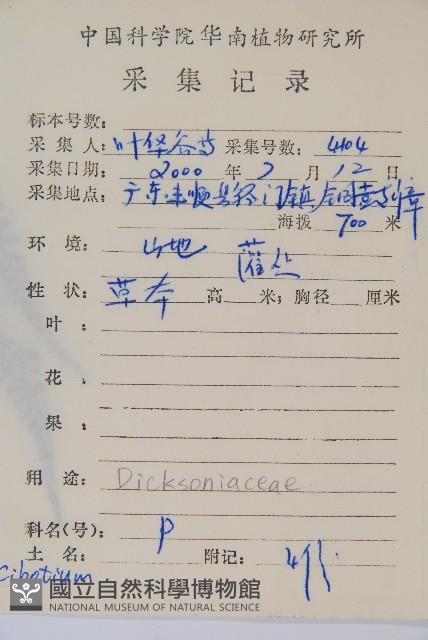 中国科学院华南植物研究所
采集记录
标本号数:
采集人: 叶华谷等 采集号数: 4104
采集日期: 2000 年 7 月 12 日
采集地点: 广东
海拨 700 米
环境: 山地 灌丛
性状: 草本 高 米; 胸径 厘米
叶:
花:
果:
用途: Dicksoniaceae
科名(号): P
土名: 附记:
Cibotium
國立自然科學博物館
NATIONAL MUSEUM OF NATURAL SCIENCE